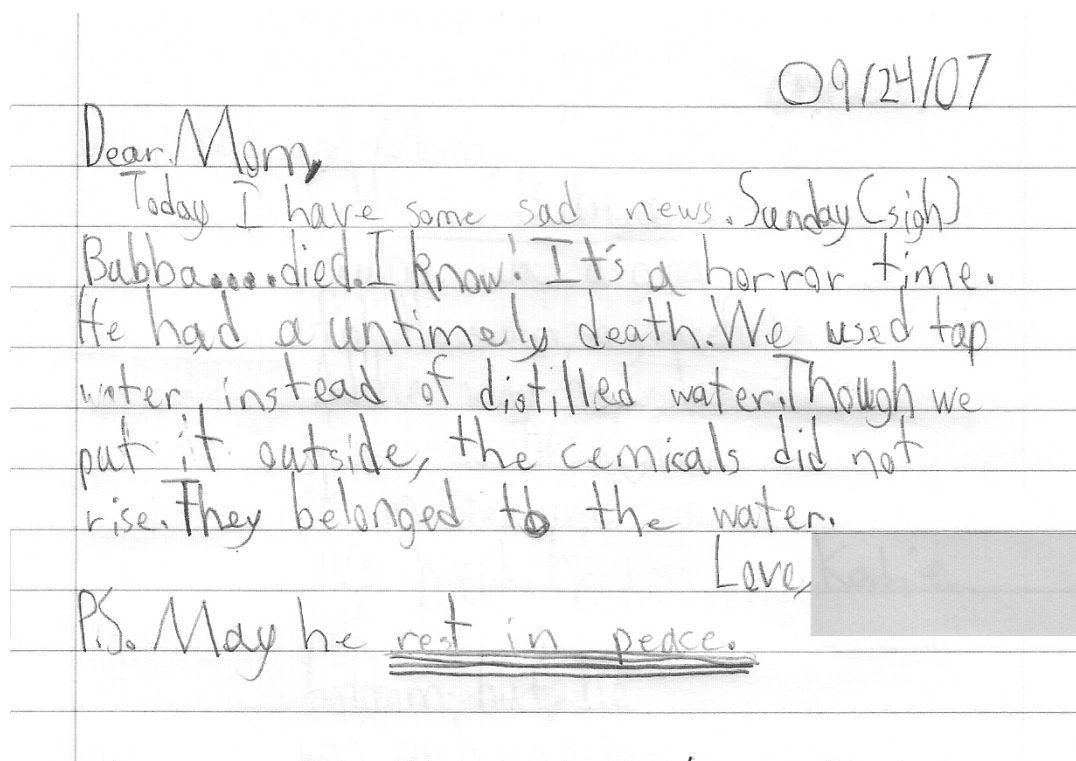 09/24/07
Dear Mom,
Today I have some sad news. Sunday (sigh)
Bubba....died. I know! It's a horror time.
He had a untimely death. We used tap
water, instead of distilled water. Though we
put it outside, the cemicals did not
rise. They belonged to the water.
Love,
P.S. May he rest in peace.